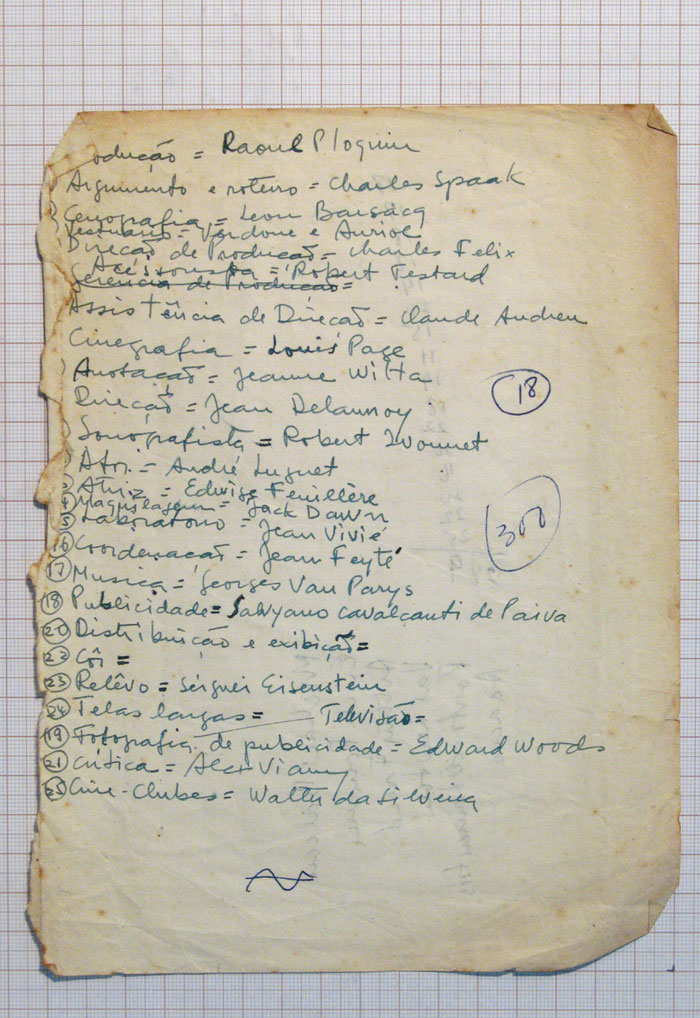 odução = Raoul Ploquin
Argumento e roteiro = Charles Spaak
Cenografia = Leon Barsacq
Vestuário = Verdone e Auriol
Direção de Produção = Charles Felix
Acéssorista = Robert Testard
Gerência de Produção =
Assistência de Direção = Claude Andreu
Cinegrafia = Louis Page
Anotação = Jeanne Witta
Direção = Jean Delannoy
18
Sonografista = Robert Ivonnet
Ator = André Luguet
Atriz = Edwige Feuillère
14 Maquilagem = Jack Dawn
300
15 Laboratorio = Jean Vivié
16 Coordenação = Jean Feyté
17 Musica = Georges Van Parys
18 Publicidade = Salvyano Cavalcanti de Paiva
20 Distribuição e exibição =
22 Côr =
23 Relêvo = Sérguei Eisenstein
24 Telas largas = Televisão =
19 Fotografia de publicidade = Edward Woods
21 Crítica = Alex Viany
25 Cine-Clubes = Walter da Silveira